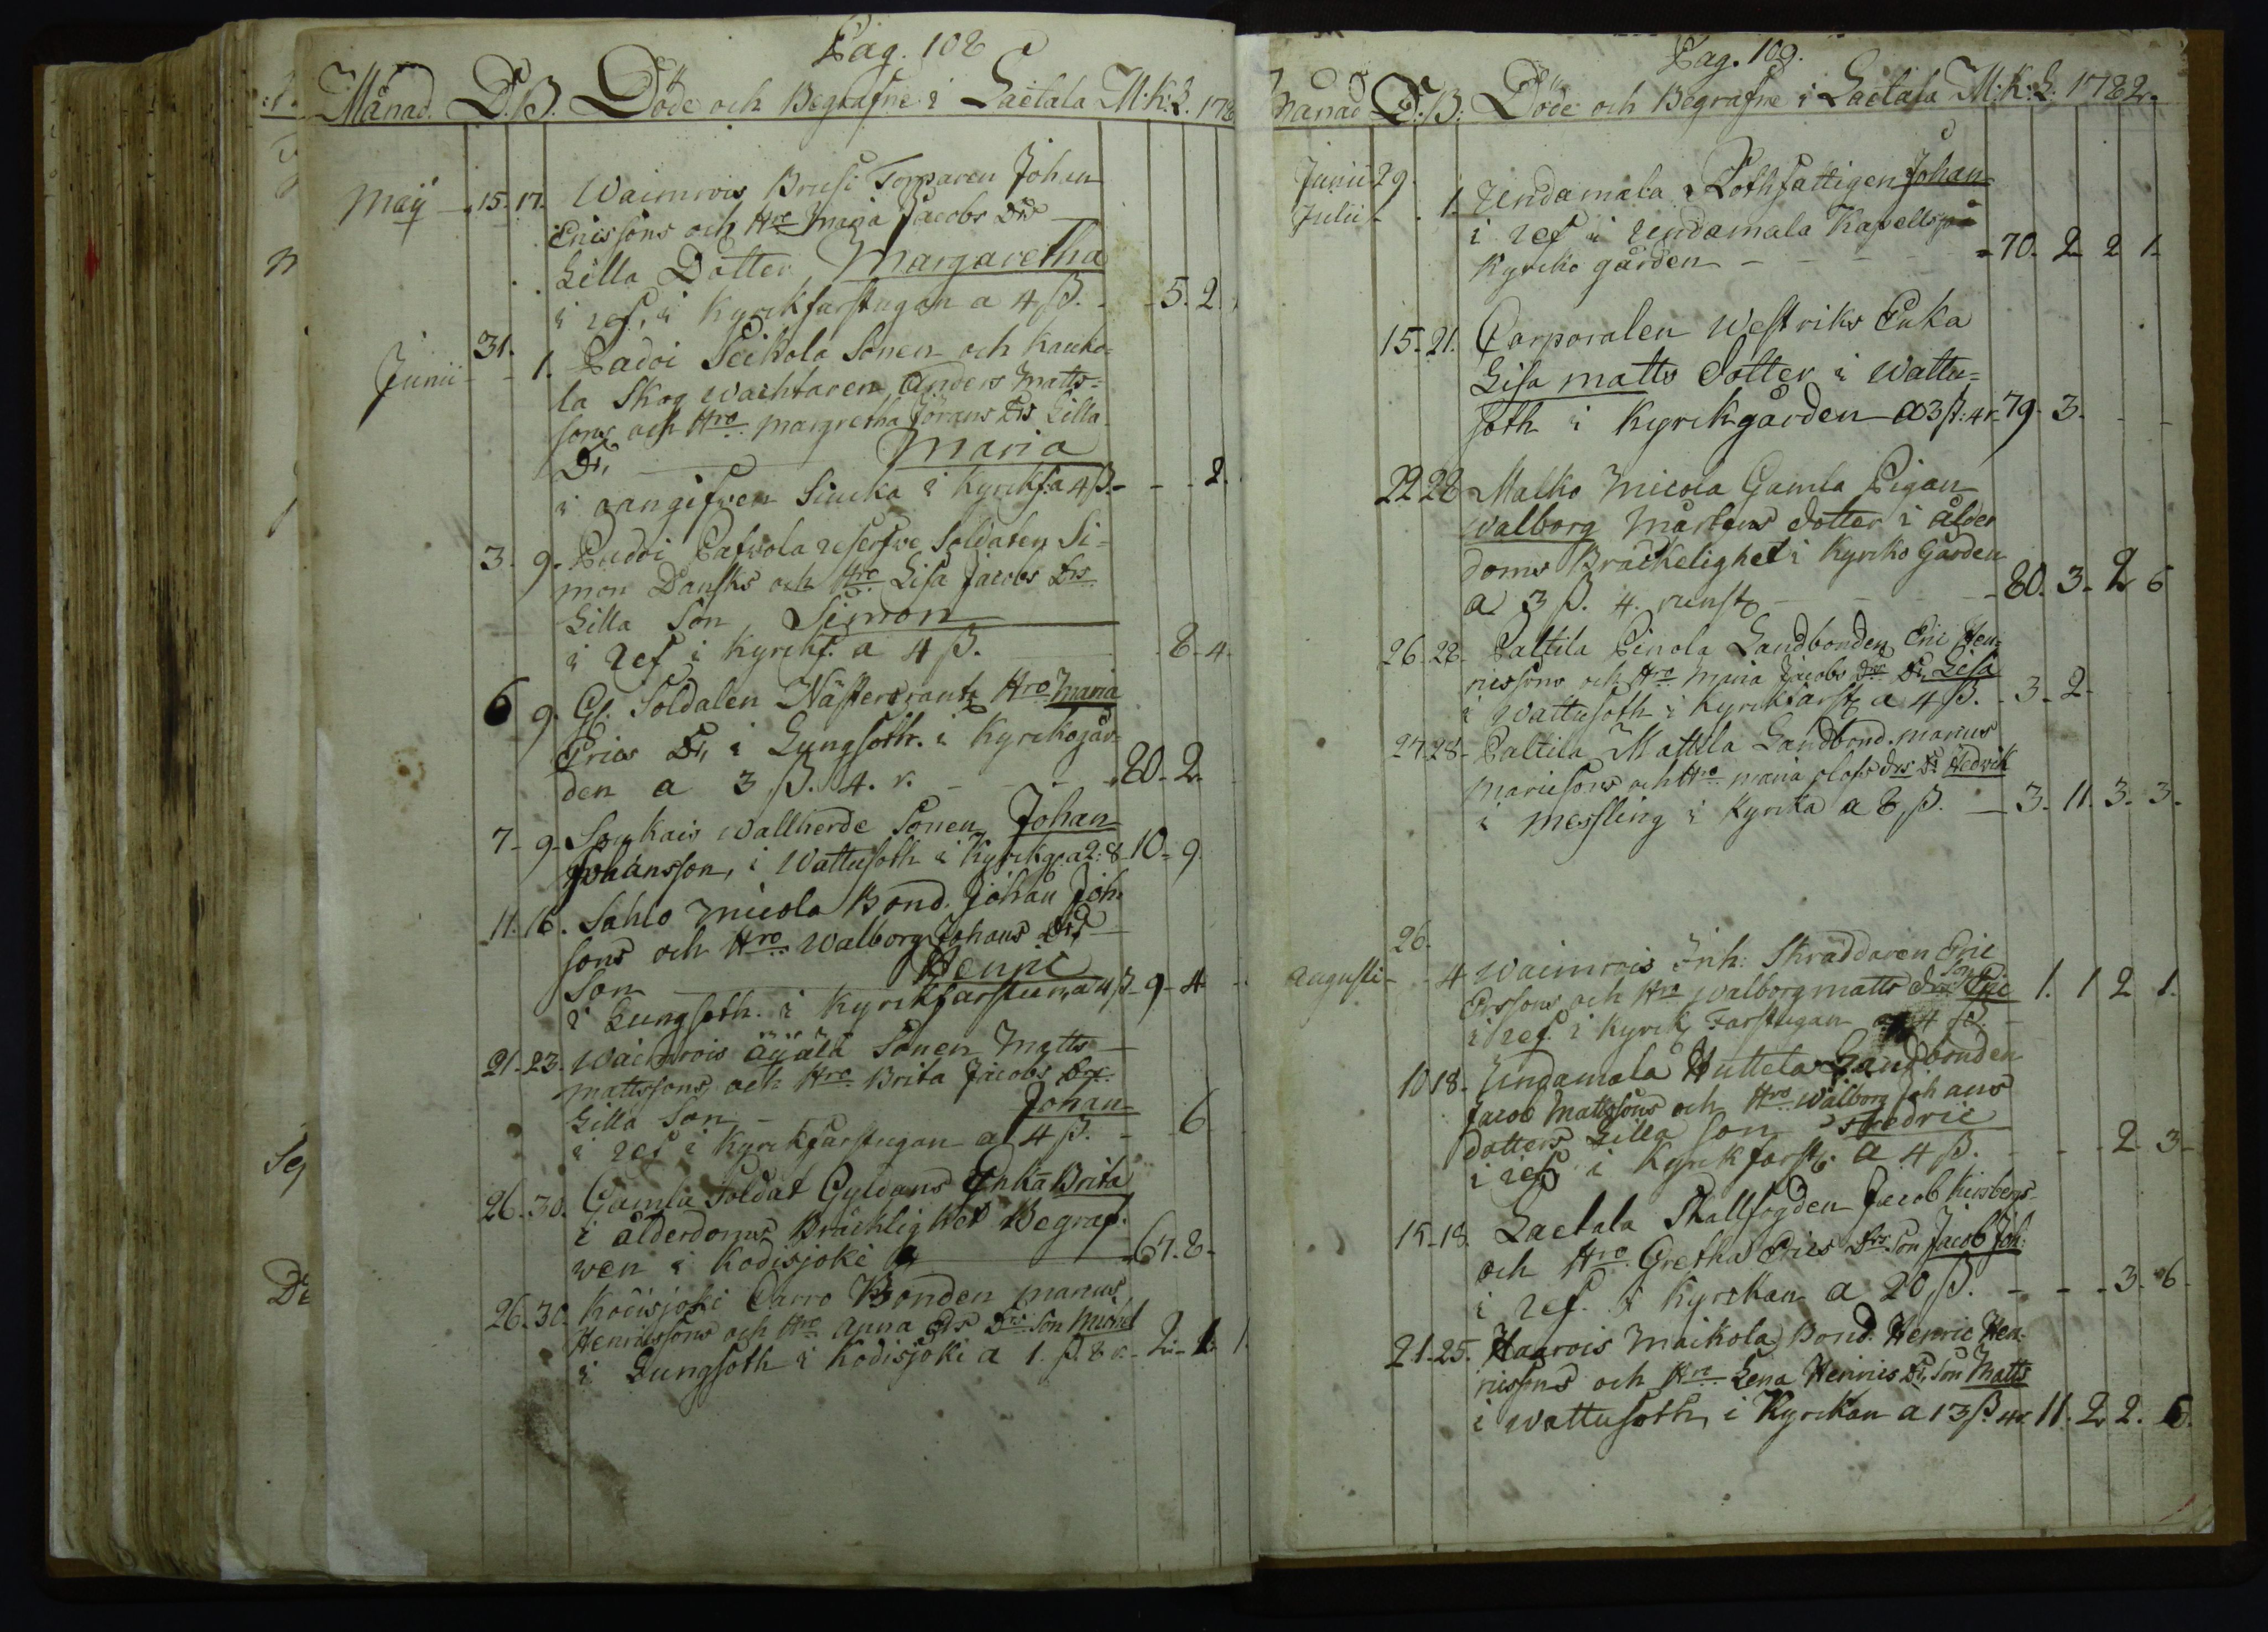 Pag. 108
Månad. D. B. Döde och Begrafne i Laetala M:K:L. 178
Maÿ 15. 17. Waimrois Brusi Torparen Johan
Ericssons och Hro Maria Jacobs Drs
Lilla Dotter Margaretha
i ref, i Kyrckfarstugan a 4 ß. 5. 2.
31.
Junii 1. Padoi Seikola Sonen och Kauko=
la Skog wachtaren Anders Matts=
sons och Hro Margretha Jörans Drs Lilla
Dr, Maria
i oangifven Siucka i Kyrckf. a 4 ß. 2.
3. 9. Padoi Pafwola reserfwe Soldaten Si=
mon Dansks och Hro Lisa Jacobs Drs
Lilla Son Simon
i Ref i Kyrckf. a 4 ß. 8. 4.
6 9. Gl. Soldaten Hro Maria
Erics Dr, i Lungsoth. i Kyrckogår=
den a 3 ß. 4. r. 80. 2.
7. 9. Wallherde Sonen Johan
Johansson, i Wattusoth i Kyrckg. a 2: 8 10. 9.
11. 16. Sahlo Micola Bond. Johan Joh.
sons och Hro Walborg Johans Drs
Son Henric
i Lungsoth. i Kyrckfarstun, a 4 ß 9. 4.
21. 23. Waimrois Äyälä Sonen Matts
Mattssons och Hro Brita Jacobs Drs
Lilla Son Johan
i ref i Kyrckfarstugan a 4 ß. 6
26. 30. Gamla Soldat Gyldans Enka Brita
i ålderdoms Bräcklighet Begraf.
wen i Kodisjoki 67. 8.
26. 30. Kodisjoki Carro Bonden Marcus
Henricssons och Hro Anna Drs Son Michel
i Lungsoth i Kodisjoki a 1. ß. 8 r. 2. 1. 1.
Pag. 109.
Månad D. B. Döde och Begrafne i Laetala M:K:L: 1782.
Junii 29.
Julii 1. Undamala Rothfattigen Johan
i ref i Undamala Kapells
Kyrcko gården 70. 2 2 1.
15. 21. Corporalen Westriks Enka
Lisa Matts dotter i Wattu=
soth i Kyrckgården a 3 ß: 4 r. 79. 3.
22 28 Malko Micola Gamla Pigan
Walborg Mårtens dotter i ålder
doms Bräckelighet i Kyrcko Gården
a 3 ß. 4. runst 80. 3. 2 6
26. 28. Paltila Pinola Landbonden Eric Hen=
ricssons och Hro Maria Jacobs Drs Dr, Lisa
i Wattusoth i Kyrckfarst a 4 ß. 3. 2.
27. 28. Paltila Mattila Landbond. Marcus
Marcssons och Hro Maria Olofs drs Dr Hedwik
i Messling i Kyrcka a 8 ß. 3. 11. 3. 3.
26.
Augusti 4 Waimrois Inh: Skräddaren Eric
Erssons och Hro Walborg Matts drs Son Eric 1. 1 2 1.
i ref. i Kyrck Farstugan a 4 ß.
10 18. Undamala Huttela Landbonden
Jacob Mattssons och Hro Walborg Johans
dotters Lilla Son Fredric
i ref i Kyrckfarst. a 4 ß. 2. 3
15. 18. Laetala Skallfogden Jacob Kirsbergs
och Hro Gretha Erics Drs Son Jacob Joh:
i ref. i Kyrckan a 20 ß. 3. 6
21. 25. Haarois Maikola Bond. Henric Hen=
ricssons och Hro Lena Henrics Dr, Son Matts
i Wattusoth, i Kyrckan a 13 ß. 4 r. 11. 2 2. 6.